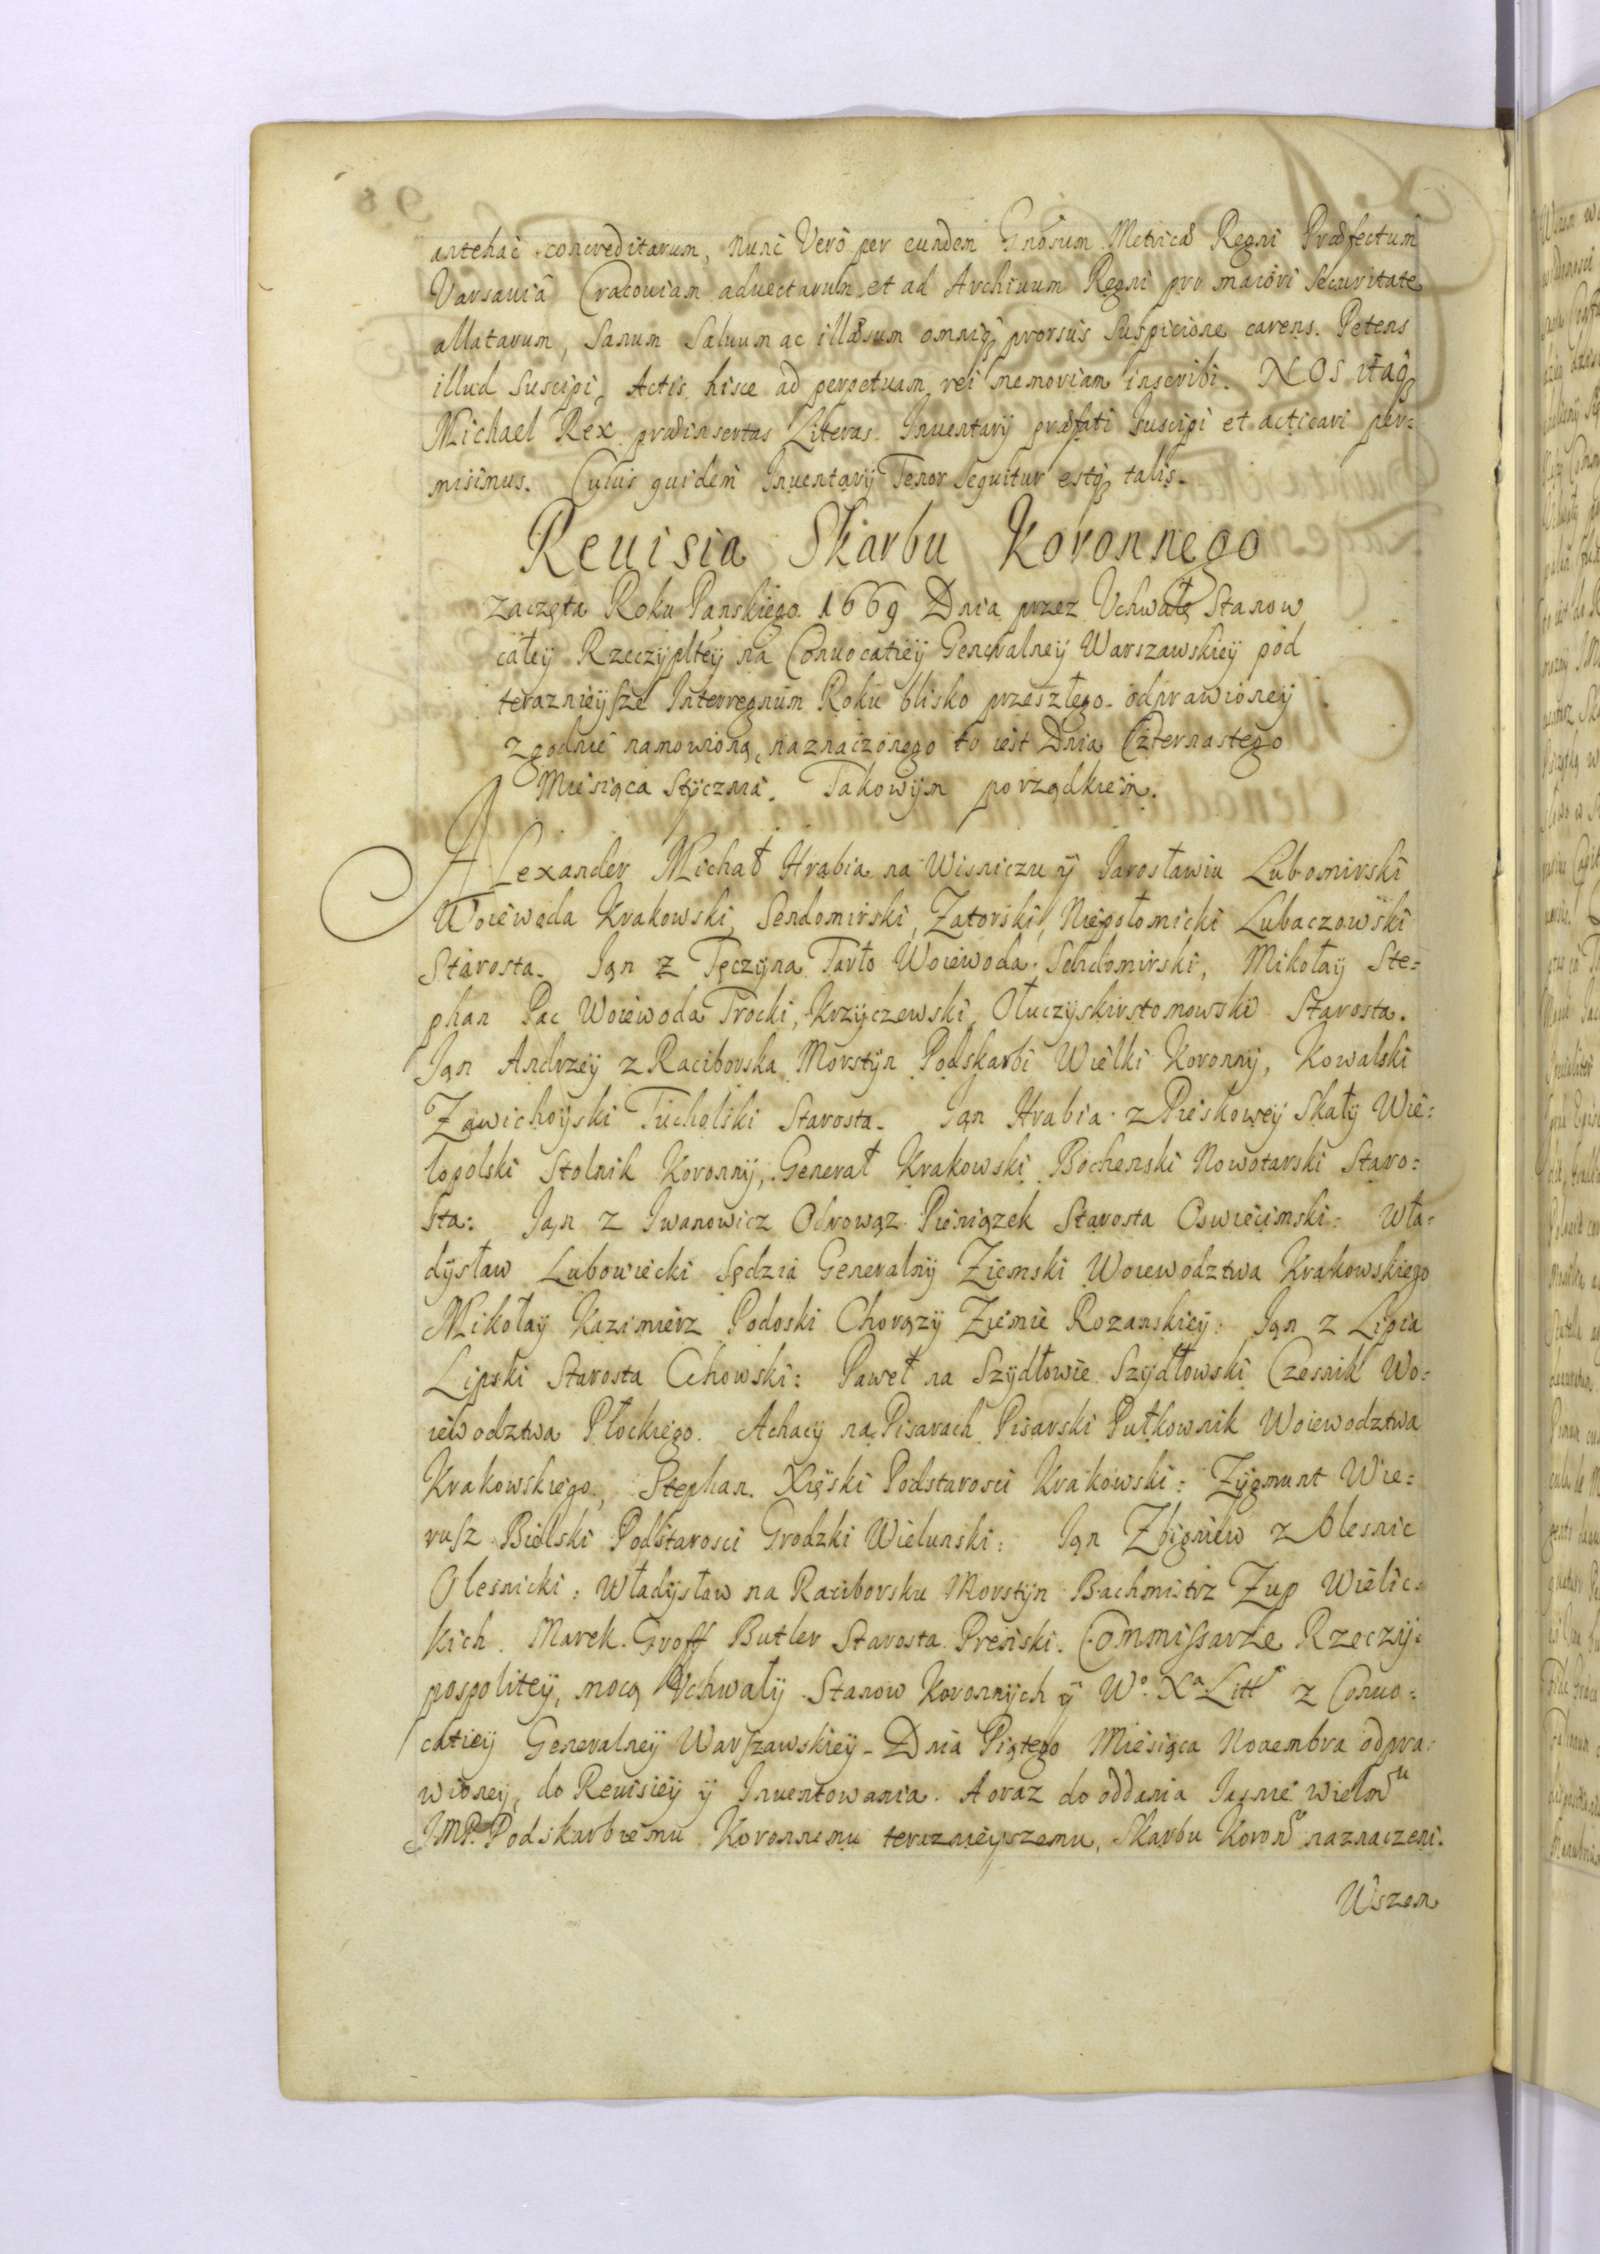 antehac concreditarum, nunc Vero per eundem Gnosum Metricæ Regni Præfectum
Varsauiâ Cracouiam aduectarum et ad Archiuum Regni pro maiori Securitate
allatarum, Sanum Saluum ac illæsum omniq prorsus Suspicione carens. Petens
illud Suscipi, Actis hisce ad perpetuam rei memoriam inscribi. NOS itaq
Michael Rex prædinsertas Literas Inuentarij præfati Suscipi et acticari per=
misimus. Cuius quidem Inuentarij Tenor Sequitur estq talis.
Reuisia Skarbu Koronnego
zaczęta Roku Panskiego 1669 Dnia przez Vchwałę Stanow
całey Rzeczypltey na Conuocatiey Generalney Warszawskiey pod
teraznieysze Interregnum Roku blisko przeszłego odprawioney
zgodnie namowioną, naznaczonego to iest Dnia Czternastego
Miesiąca Stycznia. Takowym porządkiem.
Alexander Michał Hrabia na Wisniczu y Iarosławiu Lubomirski
Woiewoda Krakowski, Sendomirski, Zatorski, Niepołomicki Lubaczowski
Starosta. Ian z Tęczyna Tarło Woiewoda Sendomirski, Mikołay Ste=
phan Pac Woiewoda Trocki, Krzyczewski, Starosta.
Ian Andrzey z Raciborska Morstyn Podskarbi Wielki Koronny, Kowalski
Zawichoyski Tucholski Starosta. Ian Hrabia z Pieskowey Skały Wie=
lopolski Stolnik Koronny, Generał Krakowski Bochenski Nowotarski Staro=
sta: Ian z Iwanowicz Odrowąz Pieniązek Starosta Oswiecimski: Wła=
dysław Lubowiecki Sędzia Generalny Ziemski Woiewodztwa Krakowskiego
Mikołay Kazimierz Podoski Chorązy Ziemie Rozanskiey: Ian z Lipia
Lipski Starosta Cchowski: Paweł na Szydłowie Szydłowski Czesnik Wo=
iewodztwa Płockiego. Achacy na Pisarach Pisarski Pułkownik Woiewodztwa
Krakowskiego, Stephan Xięski Podstarosci Krakowski: Zygmunt Wie=
rusz Bielski Podstarosci Grodzki Wielunski: Ian Zbigniew z Olesnic
Olesnicki: Władysław na Raciborsku Morstyn Bachmistrz Zup Wielic=
kich. Marek Groff Butler Starosta Presiski. Commissarze Rzeczy=
pospolitey, mocą Vchwały Stanow Koronnych y Wo Xa Litt z Conuo=
catiey Generalney Warszawskiey Dnia Piątego Miesiąca Nouembra odpra=
wioney, do Reuisiey y Inuentowania. A oraz do oddania Iasnie wielmu
IMP. Podskarbiemu Koronnemu teraznieyszemu, Skarbu Koronu naznaczeni.
Wszem